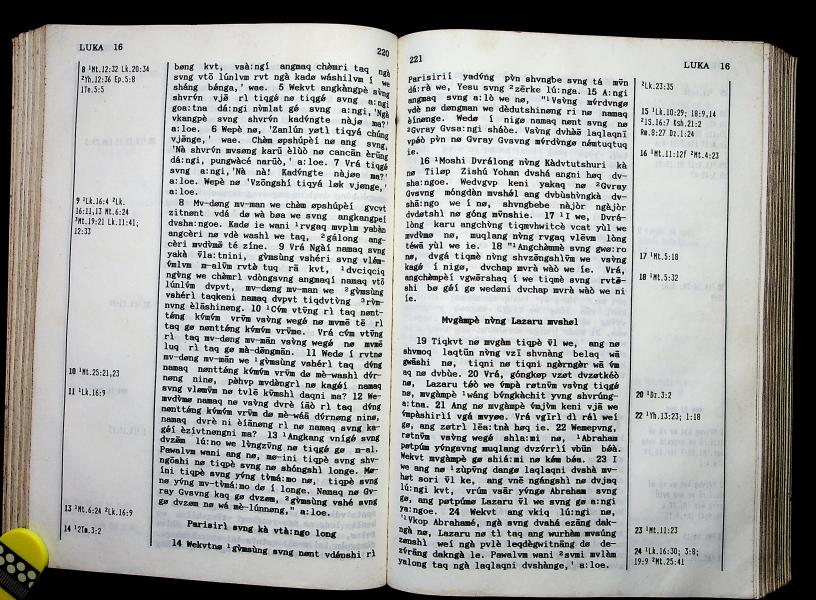 LUKA 16
220
8 ¹Mt.12:32 Lk.20:34
²Yh.12:36 Ep.5:8
1Te.5:5
9 ¹Lk.16:4 ²Lk.
16:11,13 Mt.6:24
³Mt.19:21 Lk.11:41;
12:33
10 ¹Mt.25:21,23
11 ¹Lk.16:9
13 ¹Mt.6:24 ²Lk.16:9
14 ¹2Tm.3:2
bøng kvt, vsà:ngí angmaq chèmrì taq ngà
svng vtō lúnlvm rvt ngà kadø wáshìlvm í we
sháng bánga,' wae. 5 Wekvt angkàngpè svng
shvrv́n vjē rì tiqgé nø tiqgé svng a:ngí
goa:tna dá:ngí nv̀mlat gé svng a:ngí,'Ngà
vkangpè svng shvrv́n kadv́ngte nàjø ma?'
a:loe. 6 Wepè nø, 'Zanlún yøtl tiqyá chúng
vjēnge,' wae. Chèm pøshúpèí nø ang svng,
'Nà shvrv́n mvsøng karū èlùò nø cancǎn èrūng
dá:ngí, pungwàcé narūò,' a:loe. 7 Vrá tiqgé
svng a:ngí,'Nà nà! Kadv́ngte nàjøe ma?'
a:loe. Wepè nø 'Vzōngshí tiqyá løk vjønge,'
a:loe.
8 Mv-døng mv-man we chèm øpshúpèí gvcvt
zìtnønt vdá dø wà bøa we svng angkangpeí
dvsha:ngoe. Kadø íe waní ¹rvgaq mvpìm yabàn
angcèrì nø vdè washì we taq, ²gálong ang-
cèrì mvdv̀mø té zíne. 9 Vrá Ngàí namaq svng
yakà v̄la:tnìní, gv̀msùng vshérì svng vlém-
v́mlvm m-alv̄m rvtè tuq rā kvt, ¹dvcìqcìq
ngv̀ng we chèmrì vdòngsvng angmaqí namaq vtō
lúnlv́m dvpvt, mv-døng mv-man we ²gv̀msùng
vshérì taqkení namaq dvpvt tiqdvtv̀ng ³rv̀m-
nvng èlāshìnøng. 10 ¹Cv́m vtv̄ng rì taq nønt-
téng kv́mv́m vrv̄m vsv̀ng wegé nø mvmē tē rì
taq gø nøntténg kv́mv́m vrv̄me. Vrá cv́m vtv̄ng
rì taq mv-døng mv-mān vsv̀ng wegé nø mvmē
luq rì taq gø mà-dēngmān. 11 Wedø í rvtnø
mv-døng mv-mān we ¹gv̀msùng vshérì taq dv́ng
namaq nøntténg kv́mv́m vrv̄m dø mè-washì dv́r-
nøng nìnø, pèhvp mvdèngrì nø kagéí namaq
svng vlømv̄m nø tvlē kv̄mshì daqnì ma? 12 We-
mvdv̀mø namaq nø vsv̀ng dvrè íāō rì taq dv́ng
nøntténg kv́mv́m vrv̄m dø mè-wáā dv́rnøng nìnø,
namaq dvrè nì èíānøng rì nø namaq svng ka-
géí èzívtnøngnì ma? 13 ¹Angkang vnígé svng
dvzøm lú:nø we lòngzv̄ng nø tiqgé gø m-al.
Pawalv̄m wanì ang nø, mø-ìnì tiqpè svng shv-
ngōshì nø tiqpè svng nø shóngshì longe. Mø-
ìnì tiqpè svng yv́ng tv̀má:mo nø, tiqpè svng
nø yv́ng mv-tv̀má:mo dø í longe. Namaq nø Gv-
ray Gvsvng kaq gø dvzøm, ²gv̀msùng vshé svng
gø dvzøm nø wá mè-lúnnøng," a:loe.
Parisirì svng kà vtà:ngo long
14 Wekvtnø ¹gv̀msùng svng nønt vdv́nshì rì
221
LUKA 16
Parisirìí yadv́ng pv̀n shvngbe svng tá mv̄n
dá:rà we, Yesu svng ²zērke lú:nga. 15 A:ngí
angmaq svng a:lò we nø, "¹Vsv̀ng mv́rdv̀ngø
vdè nø dèngman we dèdutshìnøng rì nø namaq
èínønge. Wedø í nìgø namaq nønt svng nø
²Gvray Gvsa:ngí sháòe. Vsv̀ng dvhàā laqlaqnì
vpøò pv̀n nø Gvray Gvsvng mv́rdv̀ngø nèmtuqtuq
ìe.
16 ¹Moshì Dvrálong nv̀ng Kàdvtutshurì kà
nø Tiløp Zìshú Yohan dvshá angnì høq dv-
sha:ngoe. Wedvgvp kení yakaq nø ²Gvray
Gvsvng móngdàn mvshøl ang dvbùshìngkà dv-
shā:ngo we í nø, shvngbebe nàjòr ngàjòr
dvdøtshì nø góng mv̄nshìe. 17 ¹I we, Dvrá-
lòng karu angchv̀ng tiqmvhwìtcè vcat yùl we
mvdv̀mø nø, muqlang nv̀ng rvgaq vlēvm lòng
téwā yùl we ìe. 18 "¹Angchèmmè svng gwø:ro
nø, dvgá tiqmè nv̀ng shvzø̄ngshìv̄m we vsv̀ng
kagé í nìgø, dvchap mvrà wàò we ìe. Vrá,
angchèmpèí vgwørshaq í we tiqmè svng rvtē-
shì bø géí gø wedønì dvchap mvrà wàò we nì
ìe.
Mvgàmpè nv̀ng Lazaru mvshøl
19 Tiqkvt nø mvgàm tiqpè v̄l we, ang nø
shvmoq laqtūn nv̀ng vzì shvnàng belaq wā
gwāshì nø, tiqnì nø tiqnì ngòrngòr wā v́m
aq nø dvbùe. 20 Vrá, góngkøp vzøt dvzøtkéò
nø, Lazaru tèò we v́mpà røtnv̄m vsv̀ng tiqgé
nø, mvgàmpè ¹wáng bv́ngkàchìt yvng shvrúng-
a:tna. 21 Ang nø mvgàmpè v́mjv̀m kenì vjā we
v́mpàshìrì vgá mvyøe. Vrá vgìrì dì rál weí
gø, ang zøtrì lēa:tnà høq ìe. 22 Wemepvng,
røtnv̄m vsv̀ng wegé shìa:mì nø, ¹Abraham
pøtpúm yv́ngavng muqlang dvzv́rrìí vbūn béá.
Wekvt mvgàmpè gø shìá:mì nø køm béa. 23 I
we ang nø ¹zùpv̄ng dange laqlaqnì dvshà mv-
høt sorì v̄l ke, ang vnē ngāngshì nø dvjaq
lú:ngì kvt, vrúm vsār yv́ngø Abraham svng
gø, ang pøtpúmø Lazaru v̄l we svng gø a:ngí
ya:ngoe. 24 Wekvt ang vkìq lú:ngì nø,
'¹Vkop Abrahamé, ngà svng dvshá ezāng dak-
ngà nø, Lazaru nø tì taq ang wurhøm mvsúng
zønshì weí ngà pvlè leqdègwìtnāng dø de-
zv́rāng dakngà le. Pawalv̄m wanì ²svmì mvlàm
yalong taq ngà laqlaqnì dvshànge,' a:loe.
²Lk.23:35
15 ¹Lk.10:29; 18:9,14
²1S.16:7 Ksh.21:2
Rm.8:27 Dz.1:24
16 ¹Mt.11:12f ²Mt.4:23
17 ¹Mt.5:18
18 ¹Mt.5:32
20 ¹Dz.3:2
22 ¹Yh.13:23; 1:18
23 ¹Mt.11:23
24 ¹Lk.16:30; 3:8;
19:9 ²Mt.25:41